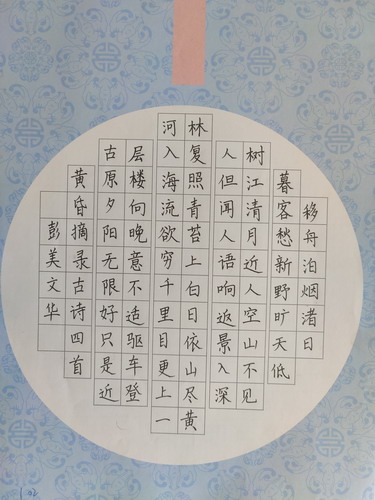 移舟泊烟渚日
暮客愁新野旷天低
树江清月近人空山不见
人但闻人语响返景入深
林复照青苔上白日依山尽黄
河入海流欲穷千里目更上一
层楼向晚意不适驱车登
古原夕阳无限好只是近
黄昏摘录古诗四首
彭美文华